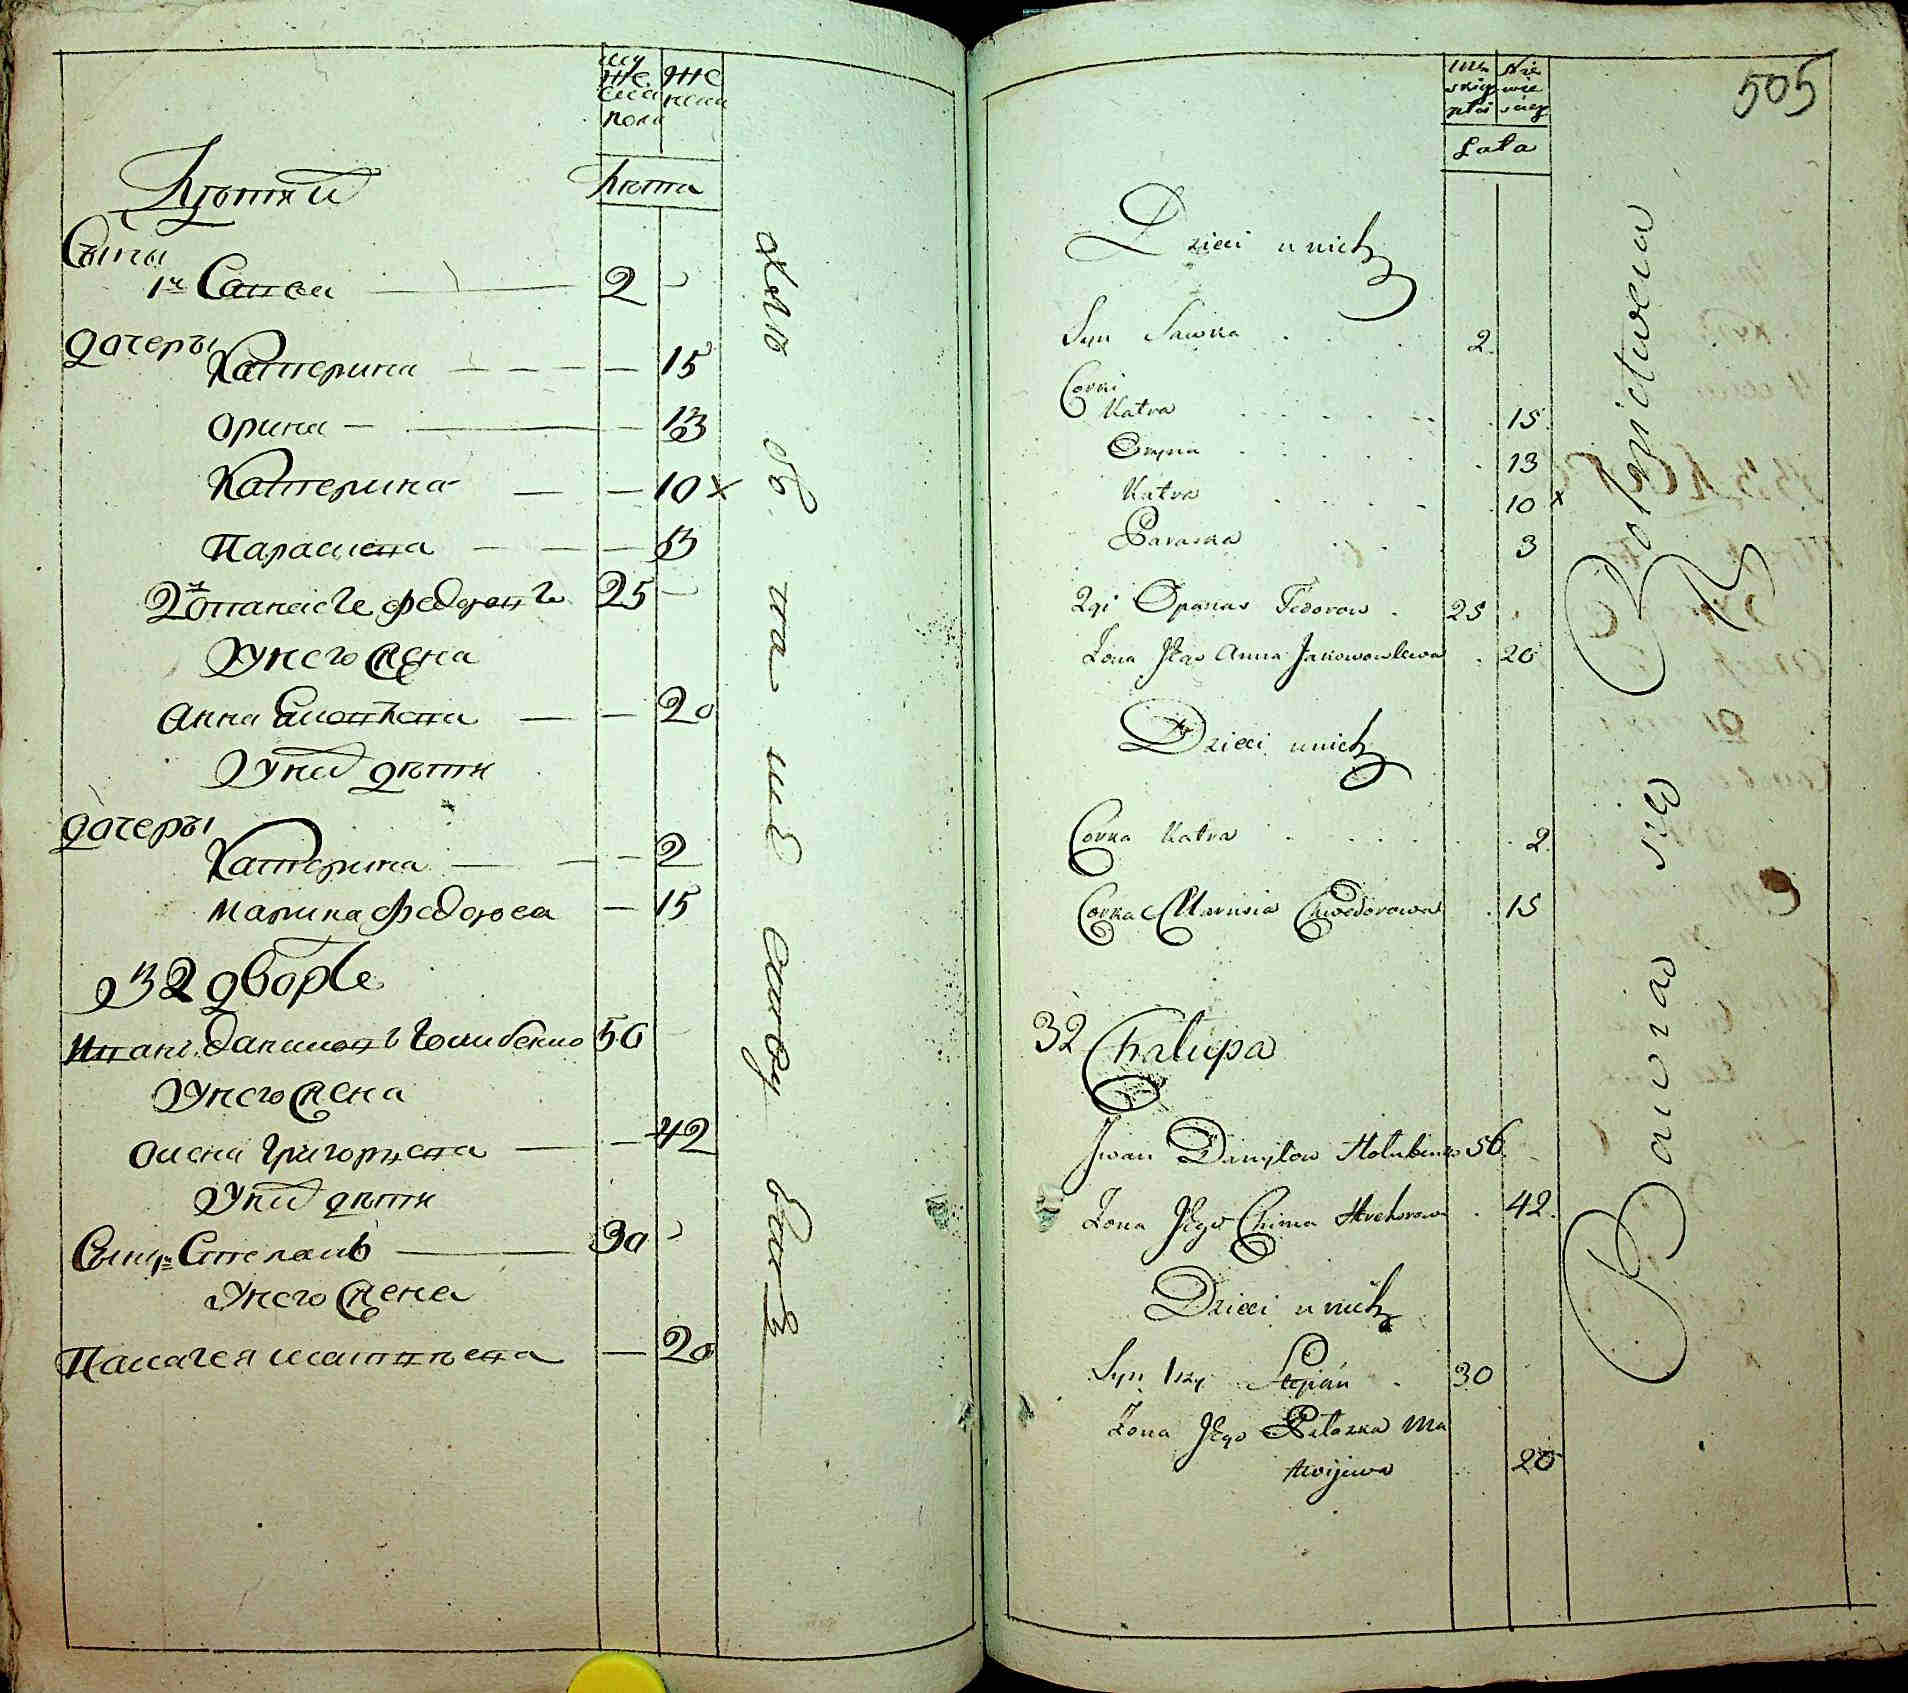 му
же
ска
пола
же
нска
Лѣта
Дѣти
Сыны
1й Савка 2
дочеры
Катерина 15
Орина 13
Катерина 10 х
Параскева 3
2й Опанасъ Федоровъ 25
У него жена
Анна 20
У них дѣти
дочеры
Катерина 2
Марина Федорова 15
в 32 дворѣ
Иванъ Даниловъ Голубенко 56
У него жена
Олена Григорцева 42
У них дѣти
Сынъ 1й Степанъ 30
У него жена
Палагея Матвѣева 20
505
Mę
skiey
płci
Nie
wie
sciey
Lata
Dzieci u nich
Syn Sawka 2
Corki
Katra 15
Oryna 13
Katra 10 x
Paraska 3
2gi Opanas Fedorow 25
Zona Jego Anna Jakowowlewa 20
Dzieci u nich
Corka Katra 2
Corka Marusia Chwedorowa 15
32 Chałupa
Iwan Danyłow Hołubenko 56
Zona Jego Chima Hrehorowa 42
Dzieci u nich
Syn 1szy Stepan 30
Zona Jego Pełazka Ma
twijewa 20
Bawiąc się Rolnictwem